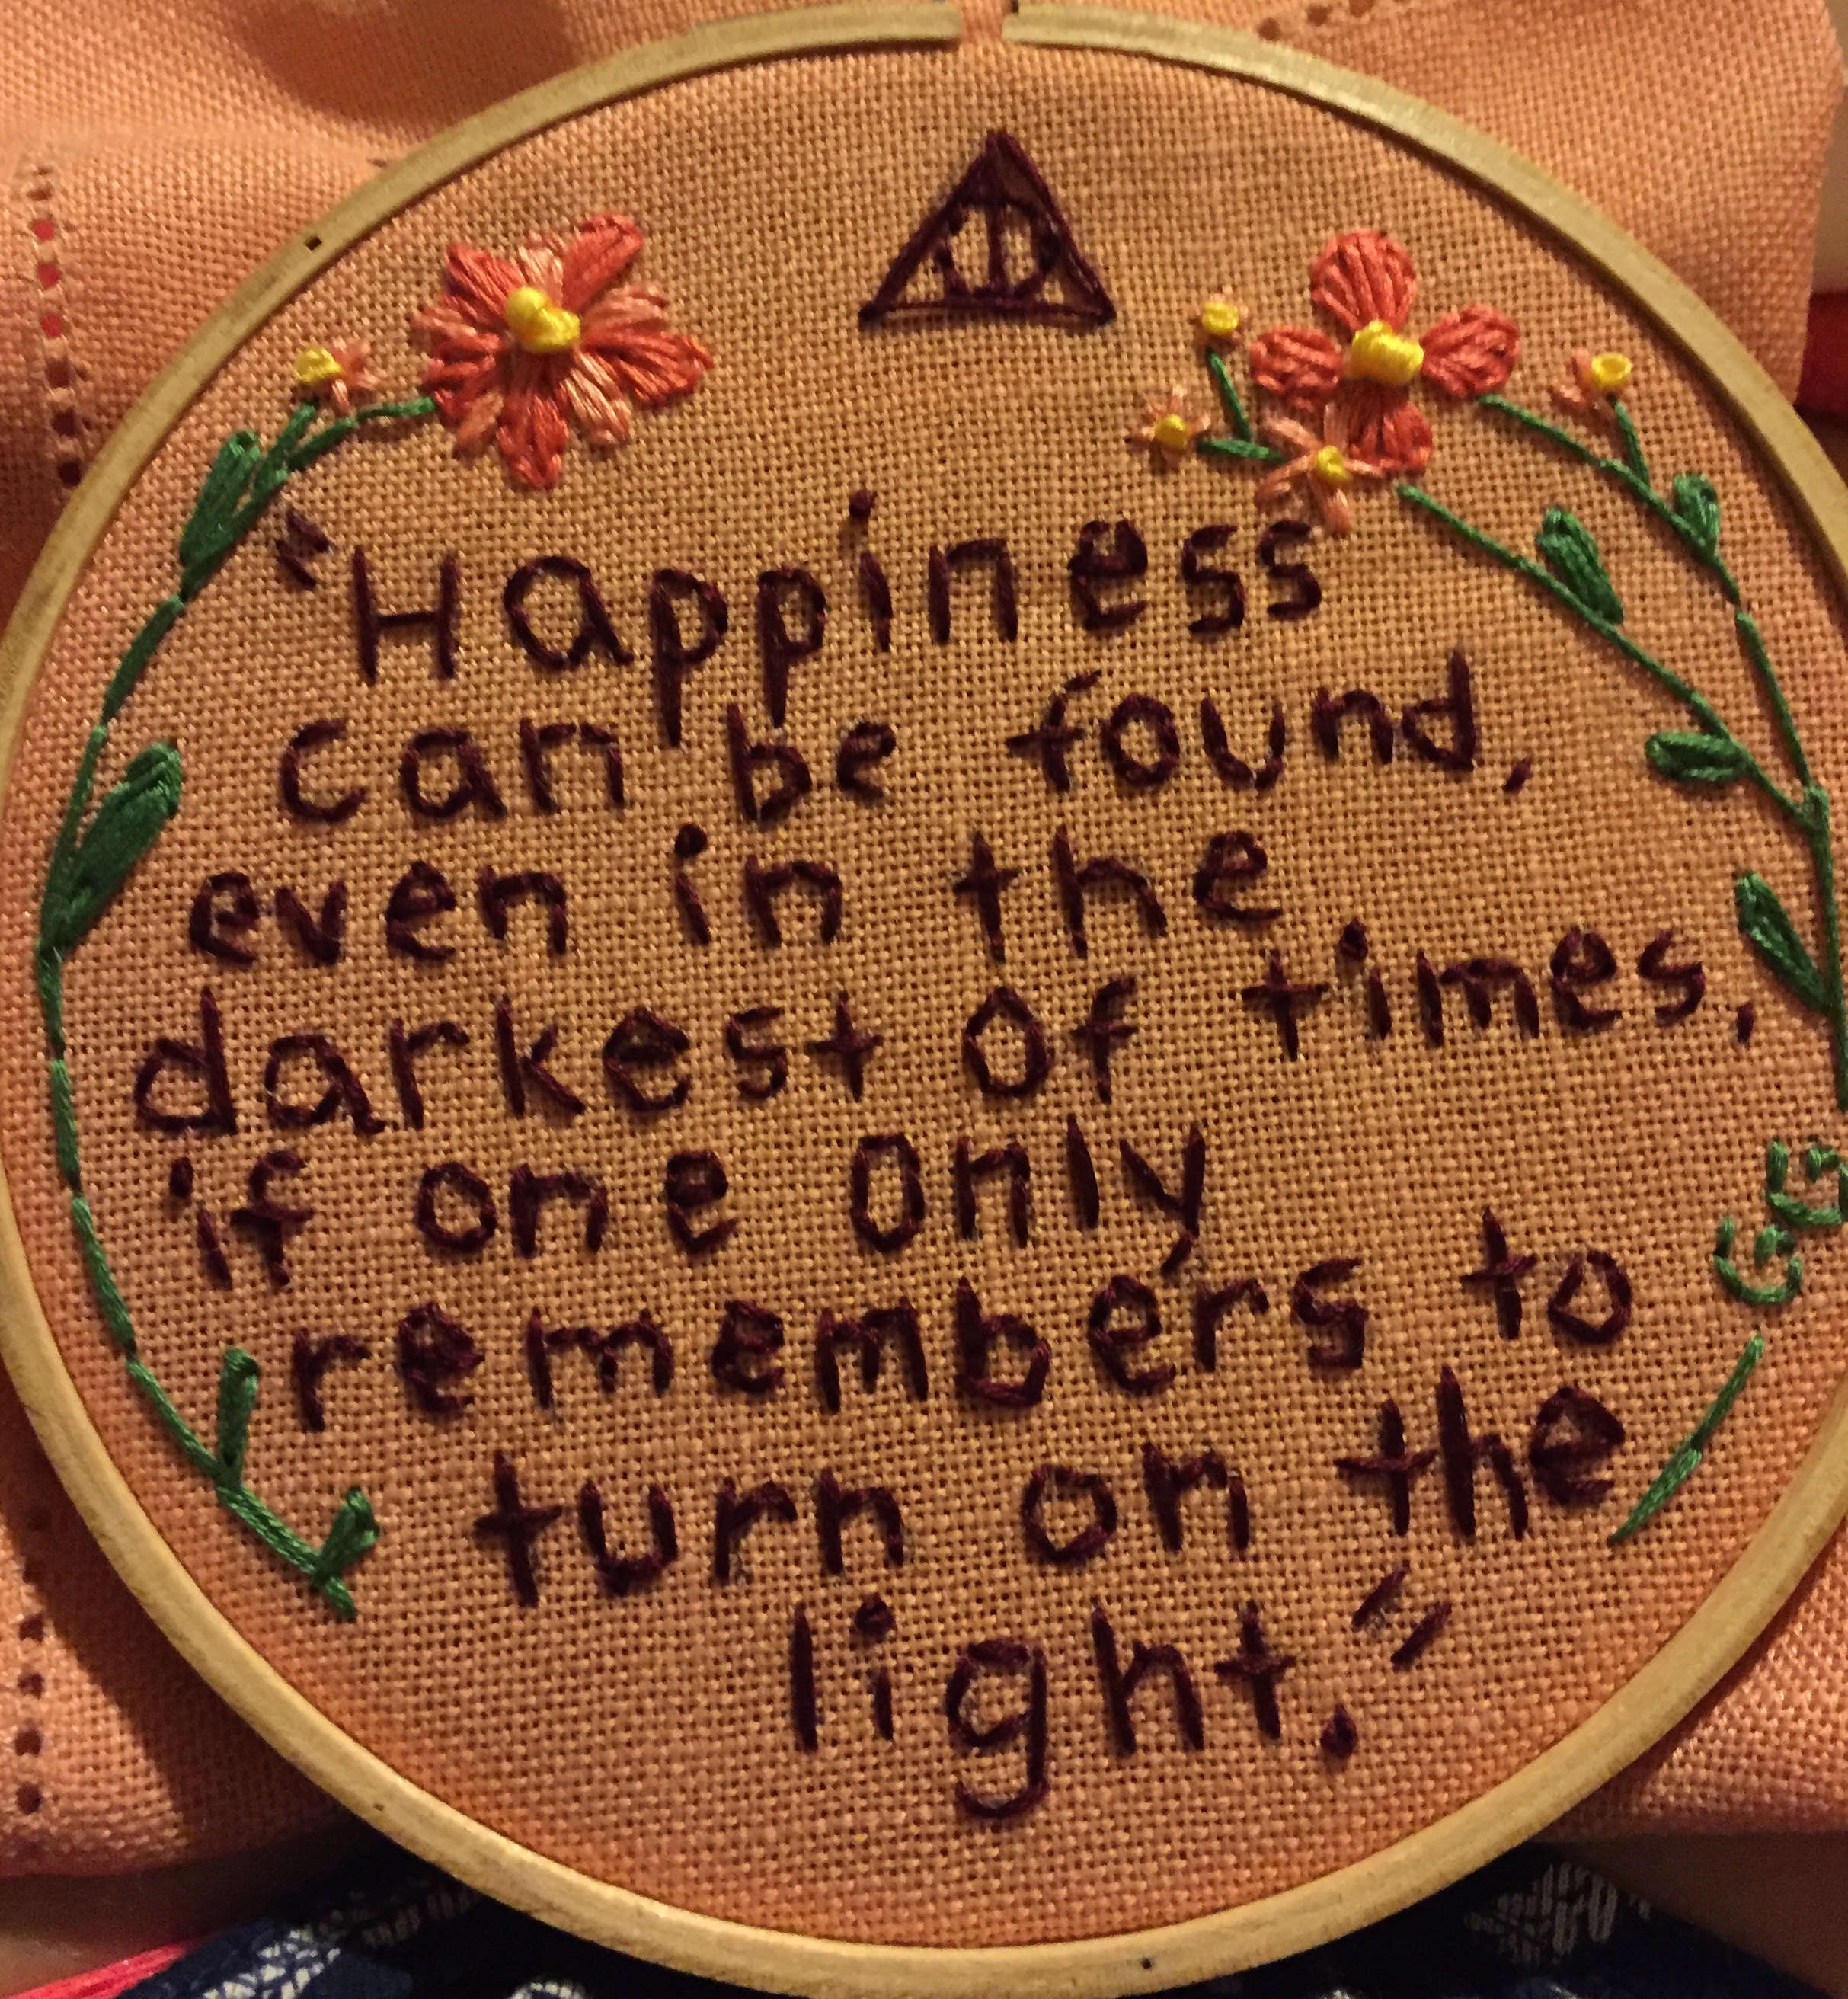 "Happiness
can be found,
even in the
darkest of times,
if one only
remembers to
turn on the
light."